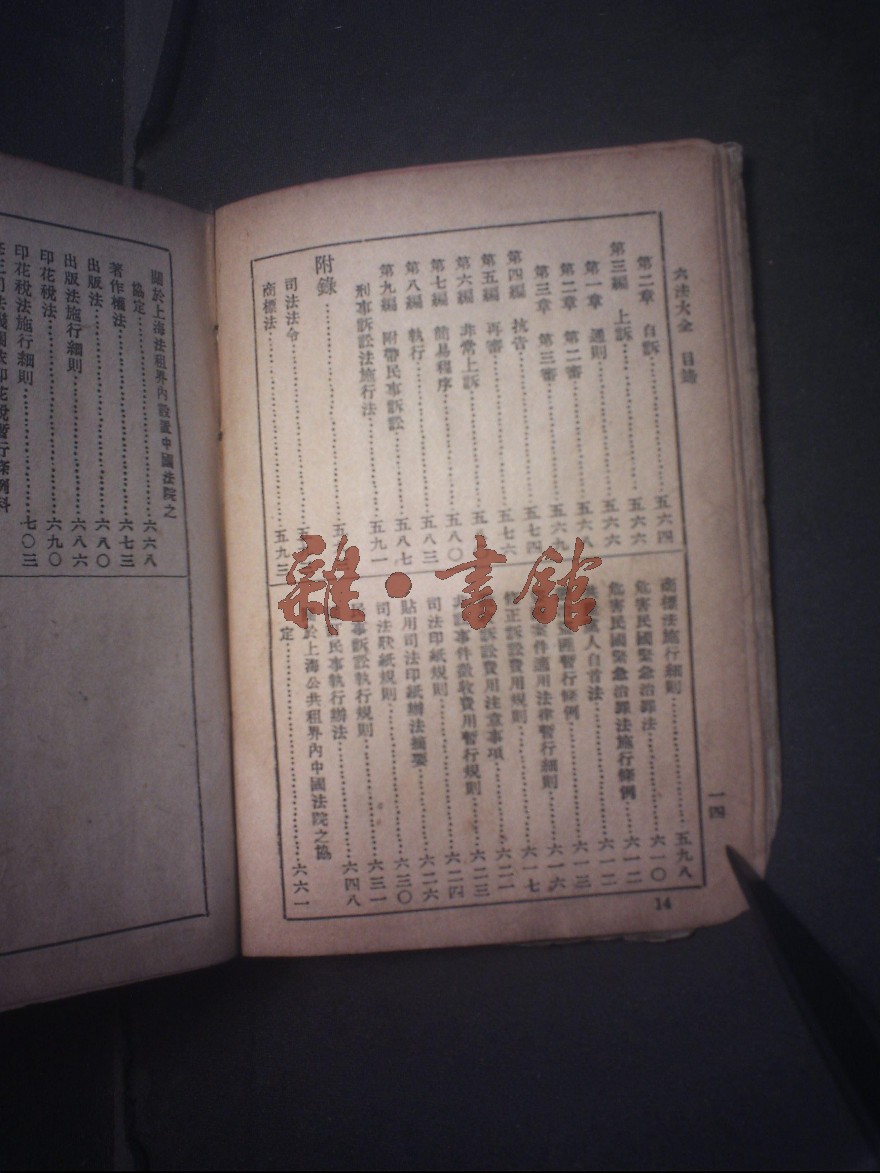 六法大全 目錄
第二章 自訴……五六四
第三編 上訴……五六六
第一章 通則……五六六
第二章 第二審……五六八
第三章 第三審……五六九
第四編 抗告……五七四
第五編 再審……五七六
第六編 非常上訴……五八
第七編 簡易程序……五八〇
第八編 執行……五八三
第九編 附帶民事訴訟……五八七
刑事訴訟法施行法……五九一
附錄……五
司法法令……五
商標法……五九三
商標法施行細則……五九八
危害民國緊急治罪法……六一〇
危害民國緊急治罪法施行條例……六一二
人自首法……六一二
暫行條例……六一三
案件適用法律暫行細則……六一六
修正訴訟費用規則……六一七
訴訟費用注意事項……六二二
非訟事件徵收費用暫行規則……六二三
司法印紙規則……六二四
貼用司法印紙辦法摘要……六二六
司法狀紙規則……六三〇
民事訴訟執行規則……六三一
民事執行辦法……六四八
於上海公共租界內中國法院之協
定……六六一
一四
14
關於上海法租界內設置中國法院之
協定……六六八
著作權法……六七三
出版法……六八〇
出版法施行細則……六八六
印花稅法……六九〇
印花稅法施行細則……七〇三
雜·書館